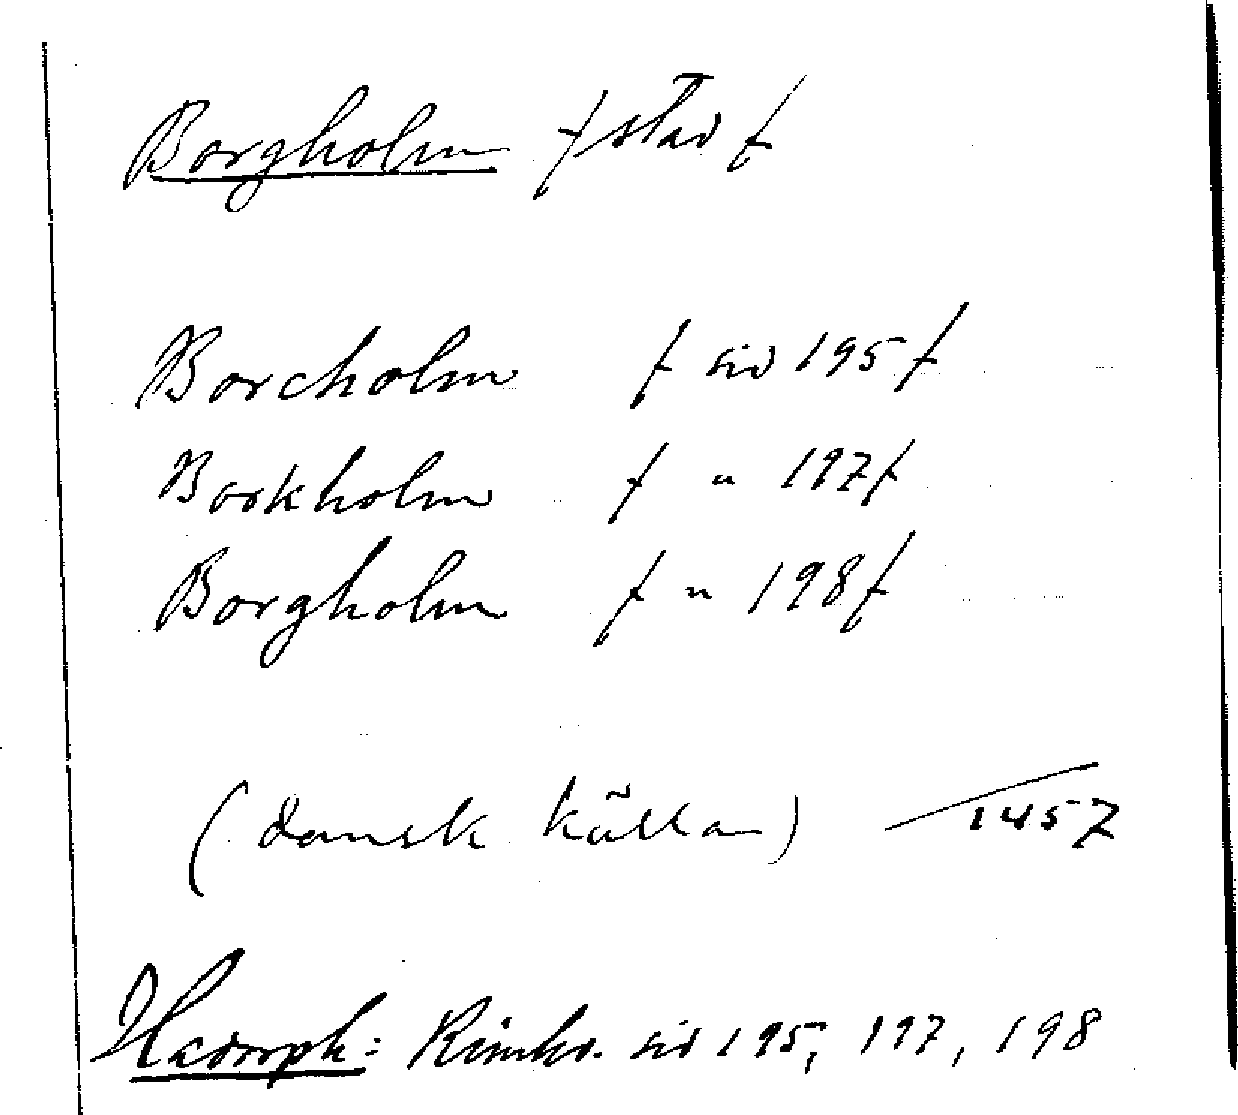 Borgholm / stad /
Borcholm / sid 195 /
Borkholm / " 197 /
Borgholm / " 198 /
(dansk källa) 1457
Hadorph: Rimkr. sid 195, 197, 198